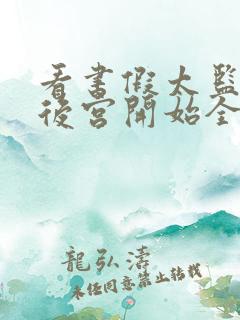 看書假太監
後宮開始全
龍弘濤
未经同意禁止转载